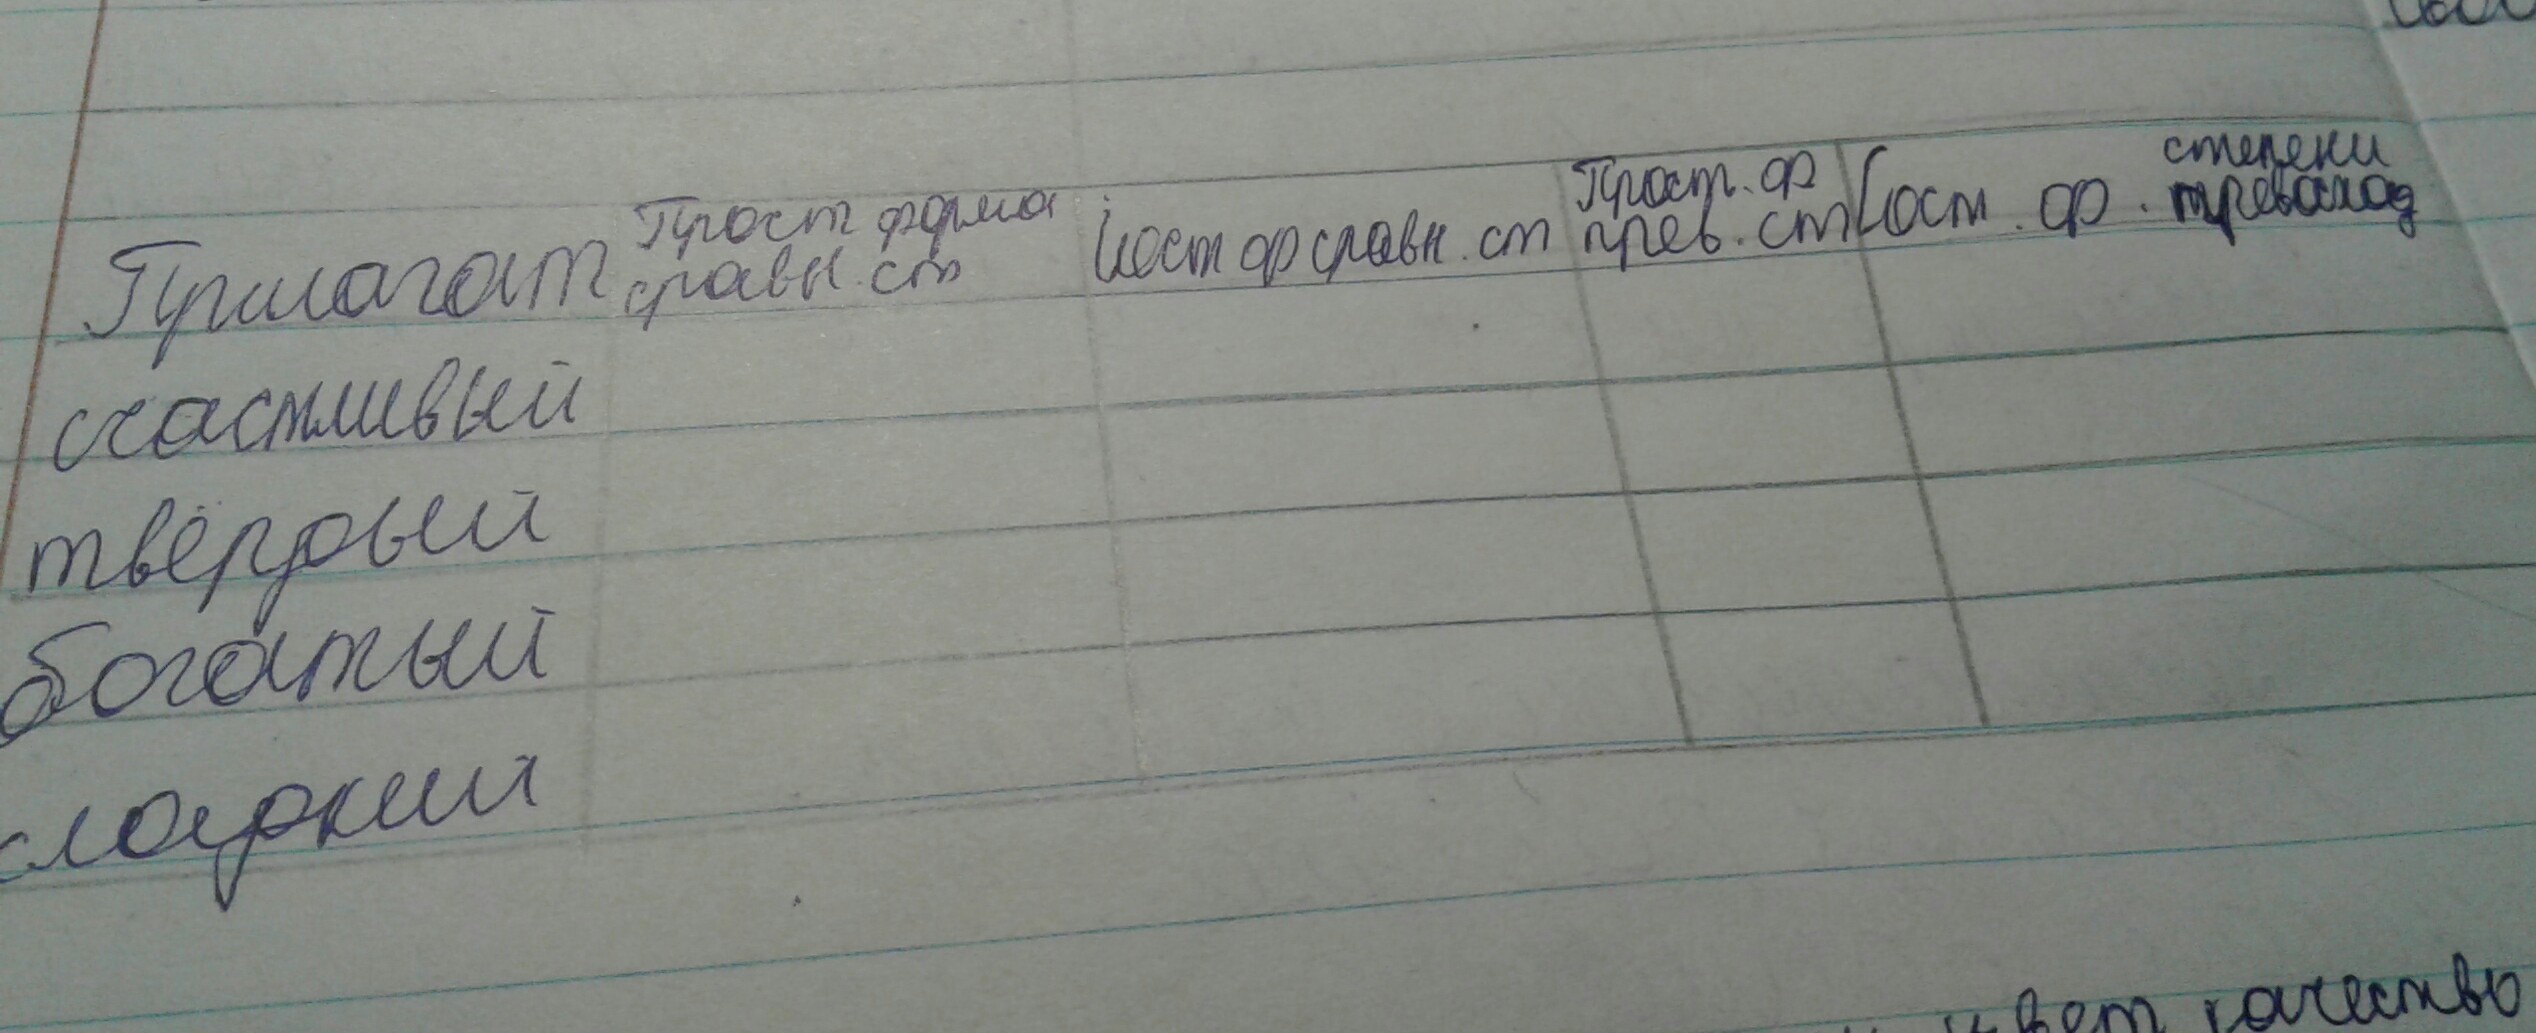 Прилагат
Прост форма
сравн. ст
Сост ф сравн. ст
Прост. ф
прев. ст
Сост. ф. превосход
степени
счастливый
твёрдый
богатый
сладкий
цвет качество